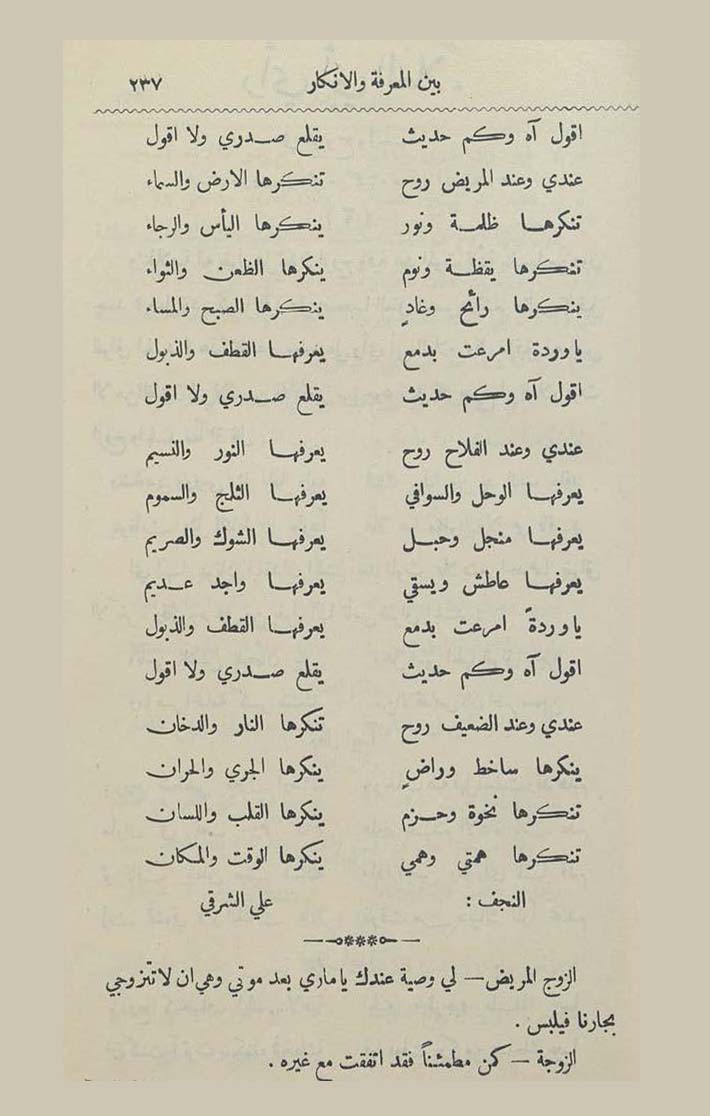 بين المعرفة والانكار ٢٣٧
اقول آه وكم حديث يقلع صدري ولا اقول
عندي وعند المريض روح تنكرها الارض والسماء
تنكرها ظلمة ونور ينكرها اليأس والرجاء
تنكرها يقظة ونوم ينكرها الظعن والثواء
ينكرها رأئح وغادٍ ينكرها الصبح والمساء
ياوردة امرعت بدمع يعرفها القطف والذبول
اقول آه وكم حديث يقلع صدري ولا اقول
عندي وعند الفلاح روح يعرفها النور والنسيم
يعرفها الوحل والسوافي يعرفها الثلج والسموم
يعرفها منجل وحبل يعرفها الشوك والصريم
يعرفها عاطش ويستقي يعرفها واجد عديم
ياوردةً امرعت بدمع يعرفها القطف والذبول
اقول آه وكم حديث يقلع صدري ولا اقول
عندي وعند الضعيف روح تنكرها النار والدخان
ينكرها ساخط وراضٍ ينكرها الجري والحران
تنكرها نخوة وحزم ينكرها القلب واللسان
تنكرها همتي وهمي ينكرها الوقت والمكان
النجف : علي الشرقي
الزوج المريض — لي وصية عندك ياماري بعد موتي وهي ان لاتتزوجي
بجارنا فيلبس .
الزوجة — كن مطمئناً فقد اتفقت مع غيره .